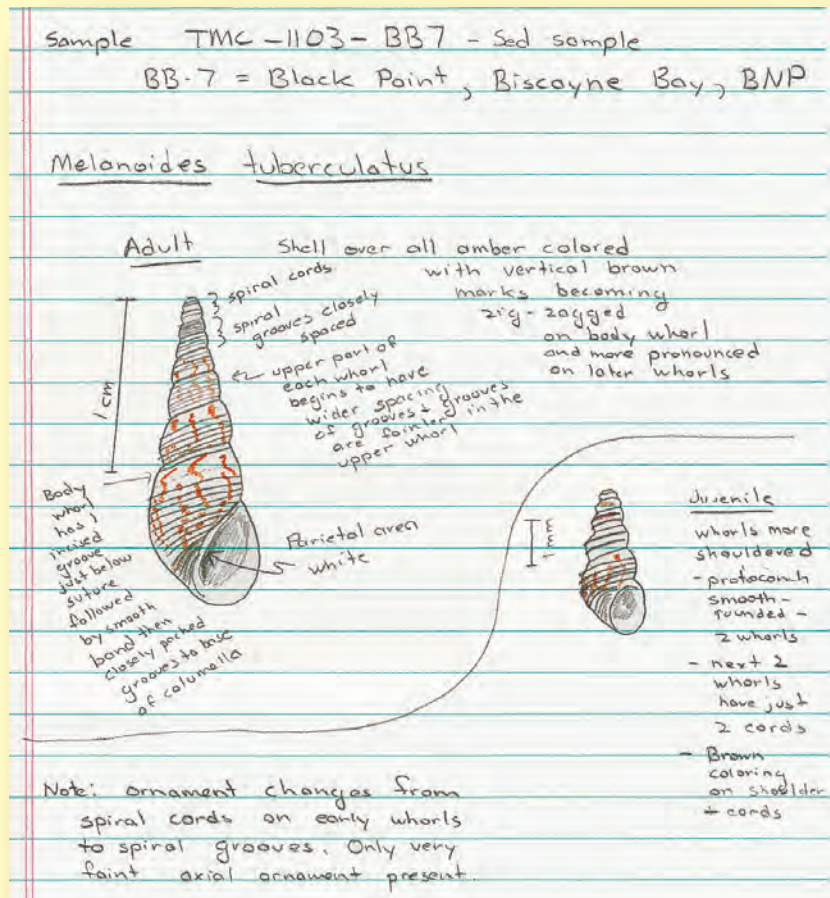 Sample TMC-1103-BB7 - Sed sample
BB-7 = Black Point, Biscayne Bay, BNP
Melanoides tuberculatus
Adult
Shell over all amber colored
with vertical brown
marks becoming
zig-zagged
on body whorl
and more pronounced
on later whorls
spiral cords
spiral
grooves closely
spaced
upper part of
each whorl
begins to have
wider spacing
of grooves + grooves
are fainter in the
upper whorl
1 cm
Body
whorl
has 1
incised
groove
just below
suture
followed
by smooth
band then
closely packed
grooves to base
of columella
Parietal area
white
1 mm
Juvenile
whorls more
shouldered
- protoconch
smooth -
rounded -
2 whorls
- next 2
whorls
have just
2 cords
- Brown
coloring
on shoulder
+ cords
Note: ornament changes from
spiral cords on early whorls
to spiral grooves. Only very
faint axial ornament present.